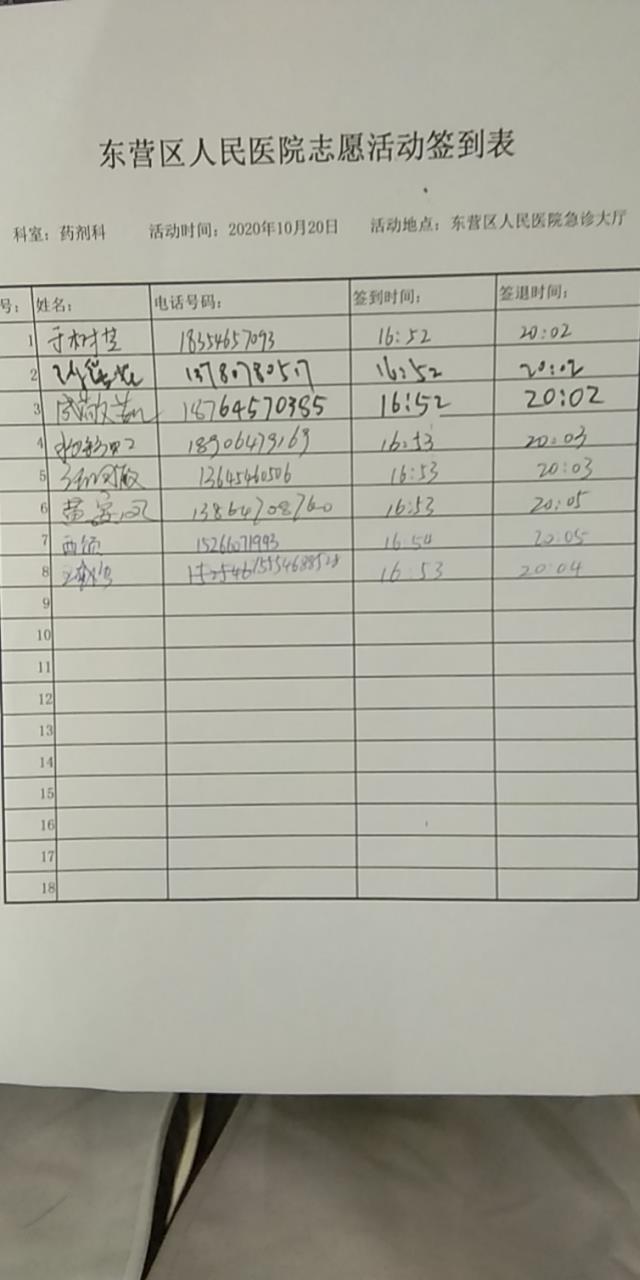 东营区人民医院志愿活动签到表
科室：药剂科 活动时间：2020年10月20日 活动地点：东营区人民医院急诊大厅
号： 姓名： 电话号码： 签到时间： 签退时间：
1 18354657093 16:52 20:02
2 16:52 20:02
3 18764570385 16:52 20:02
4 18906479169 16:53 20:03
5 13645460506 16:53 20:03
6 13864708760 16:53 20:05
7 15266071993 16:54 20:05
8 16:53 20:04
9
10
11
12
13
14
15
16
17
18